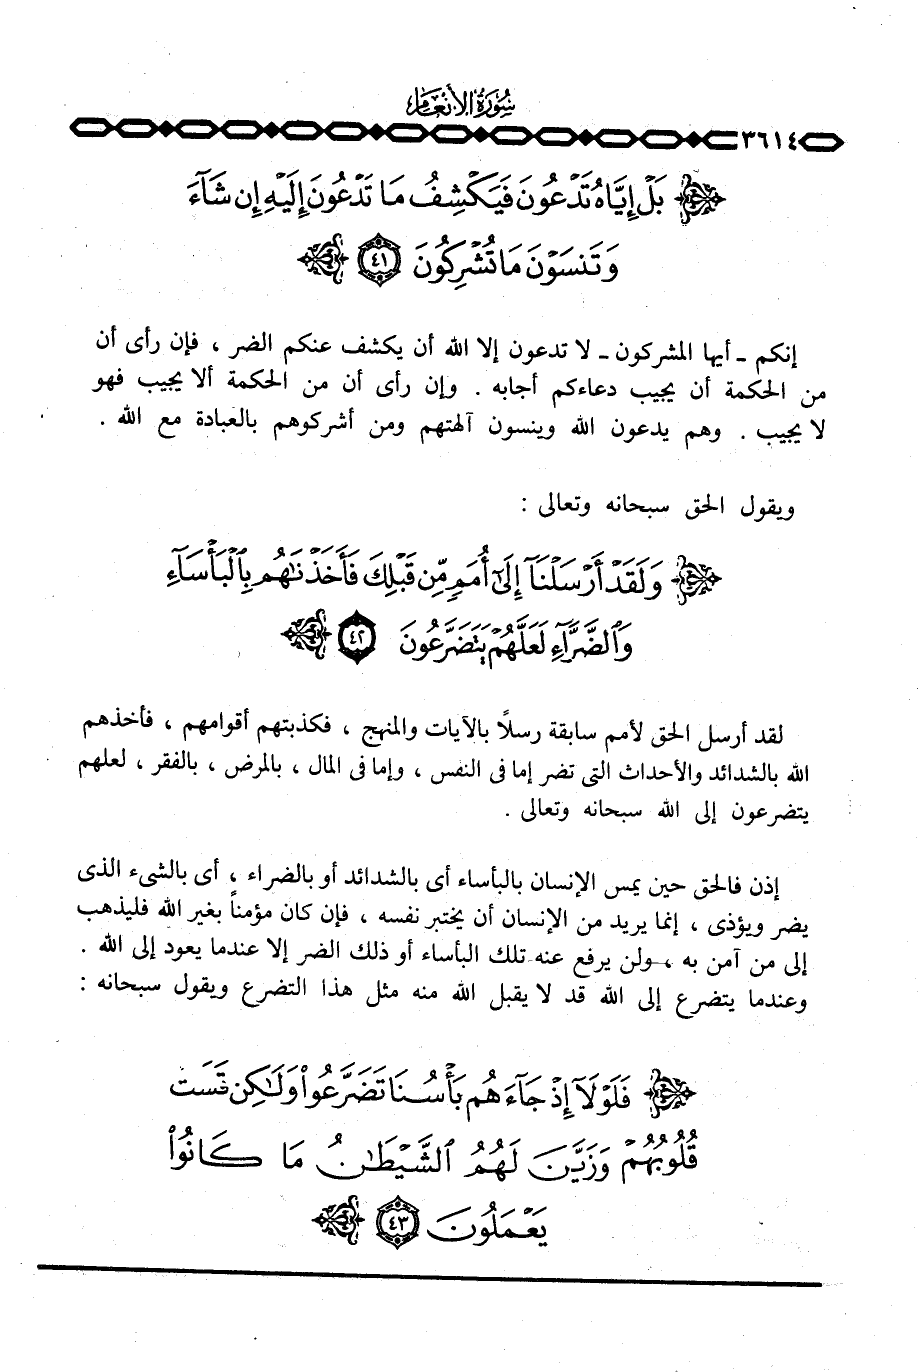 سُورَةُ الأَنْعَامِ
٣٦١٤
بَلْ إِيَّاهُ تَدْعُونَ فَيَكْشِفُ مَا تَدْعُونَ إِلَيْهِ إِن شَآءَ
وَتَنسَوْنَ مَا تُشْرِكُونَ ٤١
إنكم ـ أيها المشركون ـ لا تدعون إلا الله أن يكشف عنكم الضر ، فإن رأى أن
من الحكمة أن يجيب دعاءكم أجابه . وإن رأى أن من الحكمة ألا يجيب فهو
لا يجيب . وهم يدعون الله وينسون آلهتهم ومن أشركوهم بالعبادة مع الله .
ويقول الحق سبحانه وتعالى :
وَلَقَدْ أَرْسَلْنَآ إِلَىٰٓ أُمَمٍ مِّن قَبْلِكَ فَأَخَذْنَٰهُم بِٱلْبَأْسَآءِ
وَٱلضَّرَّآءِ لَعَلَّهُمْ يَتَضَرَّعُونَ ٤٢
لقد أرسل الحق لأمم سابقة رسلاً بالآيات والمنهج ، فكذبتهم أقوامهم ، فأخذهم
الله بالشدائد والأحداث التى تضر إما فى النفس ، وإما فى المال ، بالمرض ، بالفقر ، لعلهم
يتضرعون إلى الله سبحانه وتعالى .
إذن فالحق حين يمس الإنسان بالبأساء أى بالشدائد أو بالضراء ، أى بالشىء الذى
يضر ويؤذى ، إنما يريد من الإنسان أن يختبر نفسه ، فإن كان مؤمناً بغير الله فليذهب
إلى من آمن به ، ولن يرفع عنه تلك البأساء أو ذلك الضر إلا عندما يعود إلى الله .
وعندما يتضرع إلى الله قد لا يقبل الله منه مثل هذا التضرع ويقول سبحانه :
فَلَوْلَآ إِذْ جَآءَهُم بَأْسُنَا تَضَرَّعُوا۟ وَلَٰكِن قَسَتْ
قُلُوبُهُمْ وَزَيَّنَ لَهُمُ ٱلشَّيْطَٰنُ مَا كَانُوا۟
يَعْمَلُونَ ٤٣